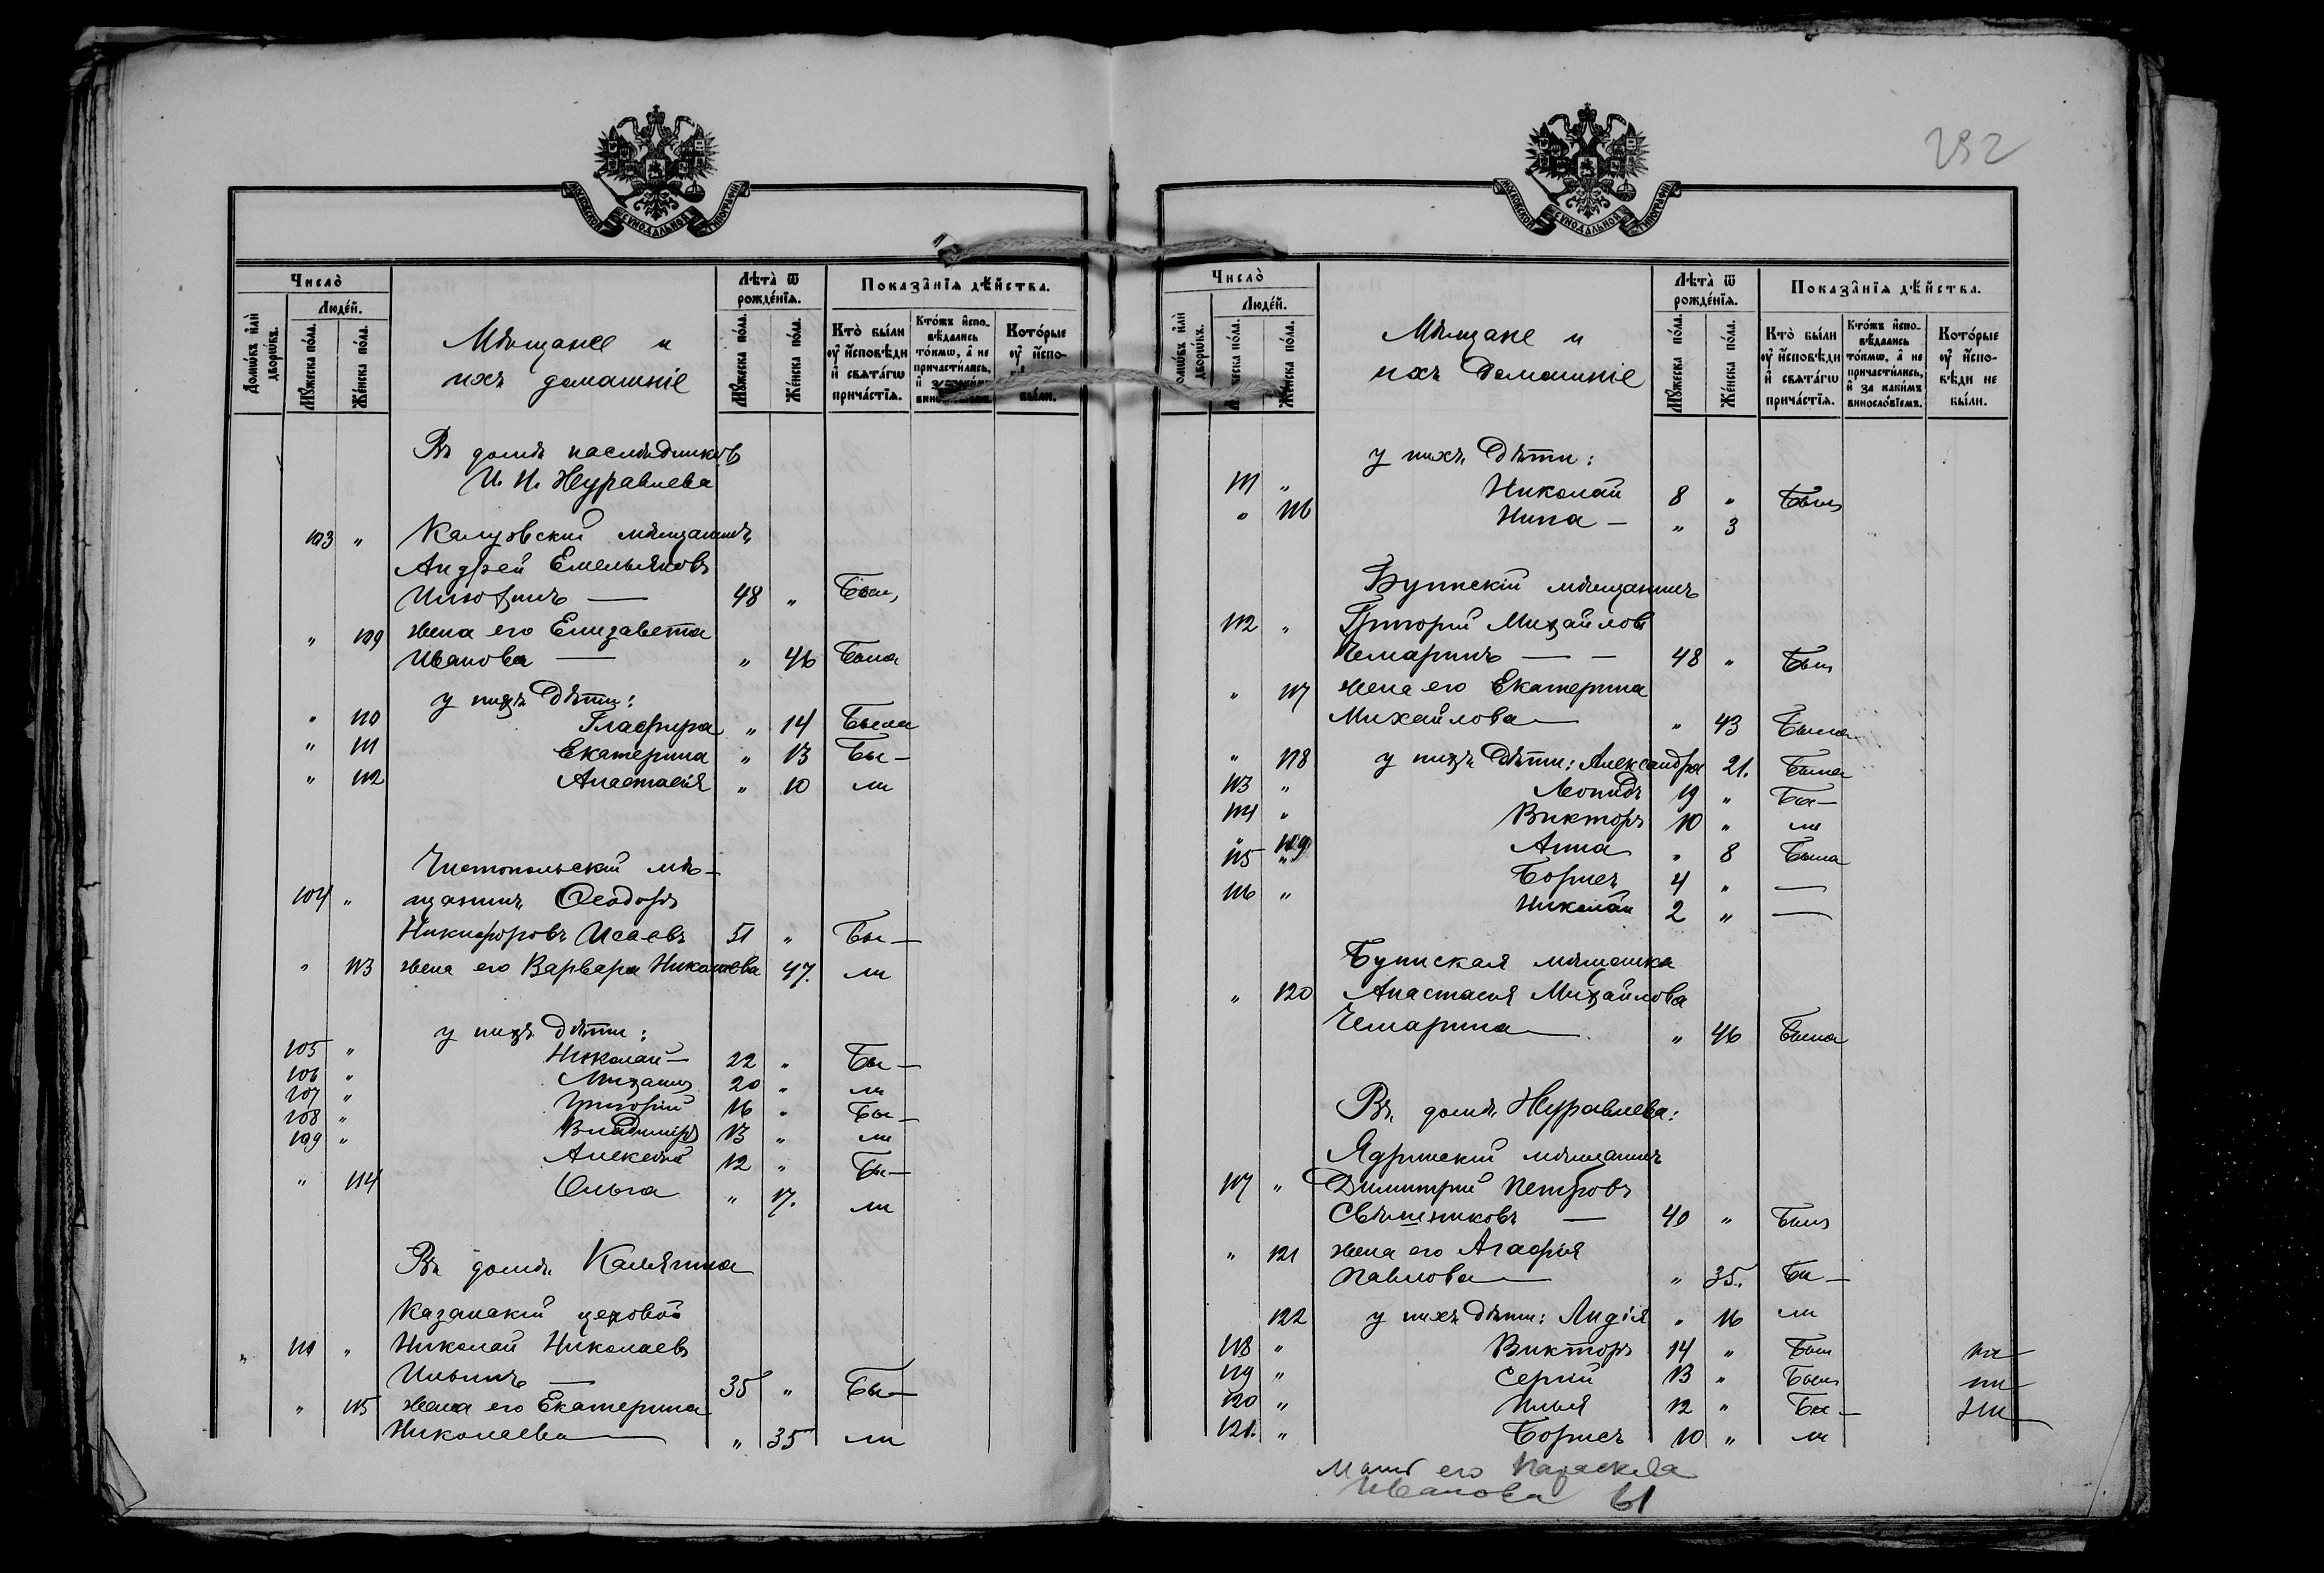 МОСКОВСКОЙ СѴНОДАЛЬНОЙ ТИПОГРАФІИ
Число̀
Люде́й.
Домѡ́въ и҆лѝ дворѡ́въ.
Мꙋ́жеска по́ла.
Же́нска по́ла.
Мѣщане и
ихъ домашніе
Лѣта̀ ѿ рожде́нїѧ.
Мꙋ́жеска по́ла.
Же́нска по́ла.
Показа̑нїѧ дѣ́йства.
Кто̀ бы́ли ᲂу҆ и҆спо́вѣди и҆ свѧта́гѡ прича́стїѧ.
Кто́жъ и҆спо-вѣ́дались то́кмѡ, а҆ не причасти́лись, и҆
Кото́рые ᲂу҆ и҆спо- бы́ли.
Въ домѣ наслѣдниковъ
И. И. Журавлева
103 " Калузскій мѣщанинъ
Андрей Емельяновъ
48 " Былъ
" 109 жена его Елизавета
Иванова — " 46 Была
у нихъ дѣти:
" 110 Глафира " 14 Была
" 111 Екатерина " 13 Бы-
" 112 Анастасія " 10 ли
Чистопольскій мѣ-
104 " щанинъ Ѳеодоръ
Никифоровъ Исаевъ 51 " Бы-
" 113 жена его Варвара Николаева 47. ли
у нихъ дѣти:
105 " Николай — 22 " Бы-
106 " Михаилъ 20 " ли
107 " Григорій 16 " Бы-
108 " Владиміръ 13 " ли
109 " Алексѣй 12 " Бы-
" 114 Ольга " 17. ли
Въ домѣ Калягина
Казанскій цеховой
" 110 " Николай Николаевъ
Ильинъ — 35 " Бы-
" 115 жена его Екатерина
Николаева — " 35 ли
292
МОСКОВСКОЙ СѴНОДАЛЬНОЙ ТИПОГРАФІИ
Число̀
Люде́й.
дворѡ́въ.
по́ла.
по́ла.
Мѣщане и
ихъ домашніе
Лѣта̀ ѿ рожде́нїѧ.
Мꙋ́жеска по́ла.
Же́нска по́ла.
Показа̑нїѧ дѣ́йства.
Кто̀ бы́ли ᲂу҆ и҆спо́вѣди и҆ свѧта́гѡ прича́стїѧ.
Кто́жъ и҆спо-вѣ́дались то́кмѡ, а҆ не причасти́лись, и҆ за каки́мъ виносло́вїемъ.
Кото́рые ᲂу҆ и҆спо-вѣди не бы́ли.
у нихъ дѣти:
111 " Николай 8 " Былъ
" 116 Нина — " 3
Буинскій мѣщанинъ
112 " Григорій Михайловъ
Чемаринъ — — 48 " Былъ
" 117 жена его Екатерина
Михайлова — " 43 Была
" 118 у нихъ дѣти: Александра 21. Была
113 " Леонидъ 19 " Бы-
114 " Викторъ 10 " ли
" 119 Анна " 8 Была
115 " Борисъ 4 " —
116 " Николай 2 " —
Буинская мѣщанка
" 120 Анастасія Михайлова
Чемарина — " 46 Была
Въ домѣ Журавлева:
Ядринскій мѣщанинъ
117 " Димитрій Петровъ
Свѣшниковъ — 40 " Былъ
" 121 жена его Агафія
Павлова — " 35. Бы-
122 у нихъ дѣти: Лидія " 16 ли
118 " Викторъ 14 " Былъ
119 " Сергій 13 " Былъ
120 " Илья 12 " Бы-
121. " Борисъ 10 " ли
Мать его Параскева
Иванова 61